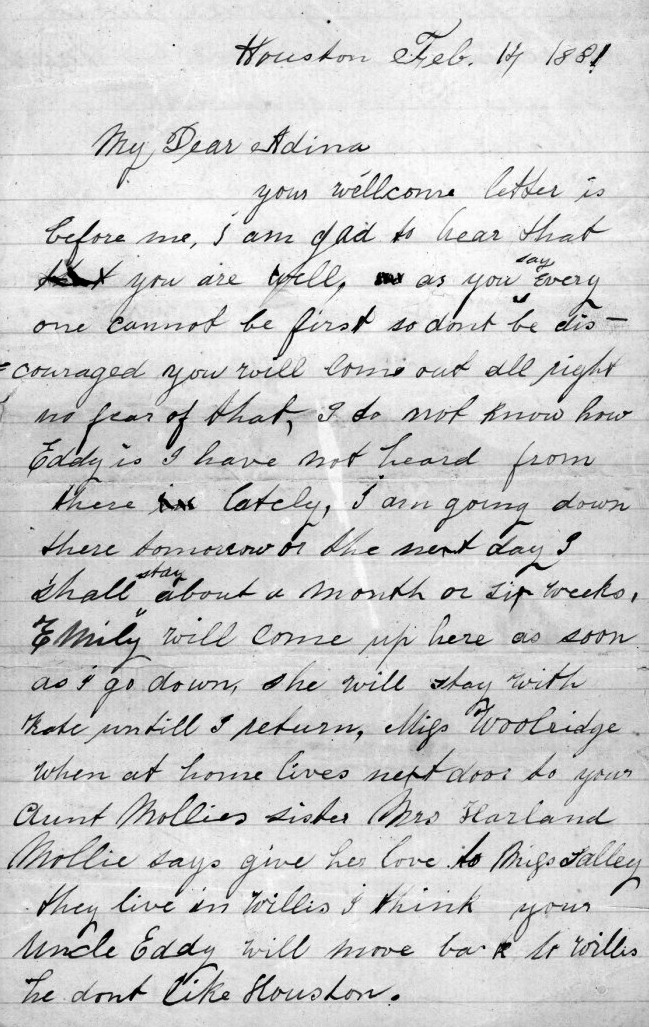 Houston Feb. 14 1881
My Dear Adina
your wellcome letter is
before me, I am glad to hear that
you are well, as you say Every
one cannot be first so dont be dis-
couraged you will come out all right
no fear of that, I do not know how
Eddy is I have not heard from
there lately, I am going down
there tomorrow or the next day I
shall stay about a month or six weeks.
"Emily" will come up here as soon
as I go down, she will stay with
Kate untill I return, Miss Woolridge
when at home lives next door to your
Aunt Mollies sister Mrs Harland
Mollie says give her love to Miss Talley
they live in Willis I think your
Uncle Eddy will move back to Willis
he dont like Houston.